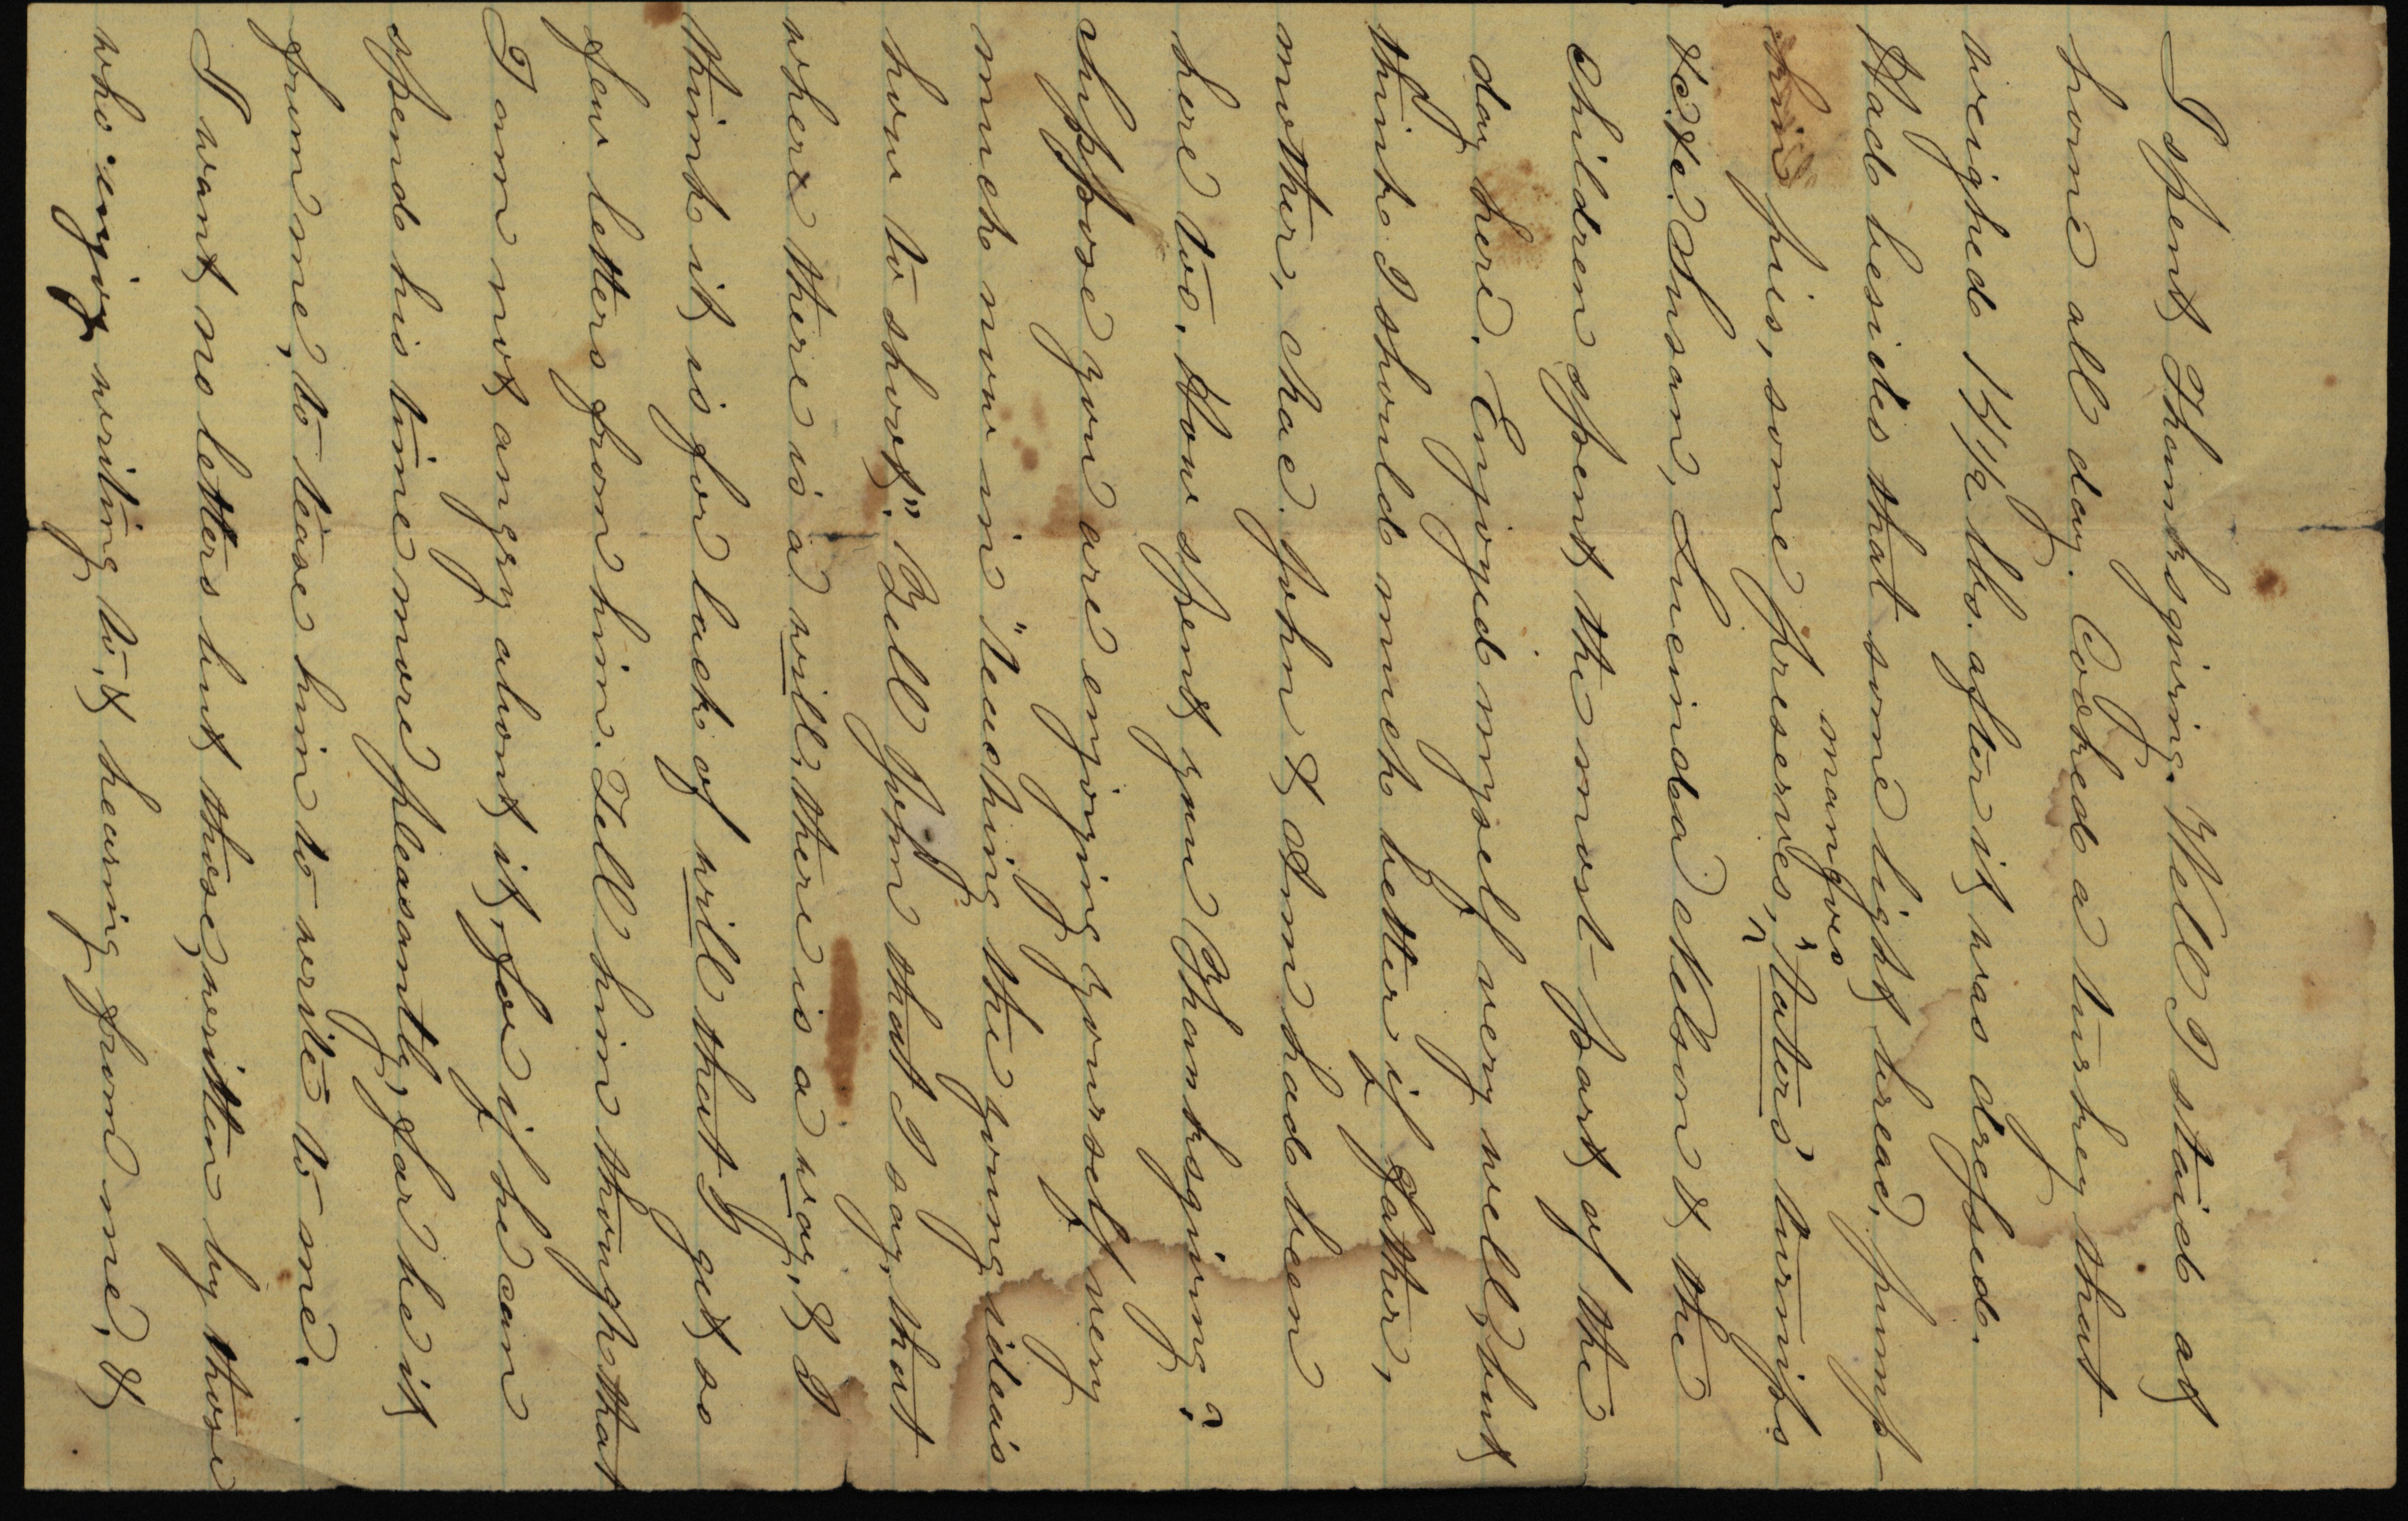 I spent Thanksgiving. Well I staid at
home all day. Cooked a turkey that
weighed 15 1/2 lbs. after it was dressed.
Had besides that some light bread, pump-
kin pies, some preserves, mangoes "taters" turnips
&c. &c. Susan, Lucinda Nelson & the
children spent the most part of the
day here. Enjoyed myself very well, but
think I should much better if father,
mother, Mac. John & Am had been
here too. How spent you Thanksgiving?
suppose you are enjoying yourself very
much now in "teaching the young ideas
how to shoot". Tell John that I say, that
where there is a will, there is a way, & I
think it is for lack of will that I get so
few letters from him. Tell him though that
I am not angry about it, for if he can
spend his time more pleasantly, far be it
from me, to tease him to write to me.
I want no letters but those, written by those
who enjoy writing to, & hearing from me, &